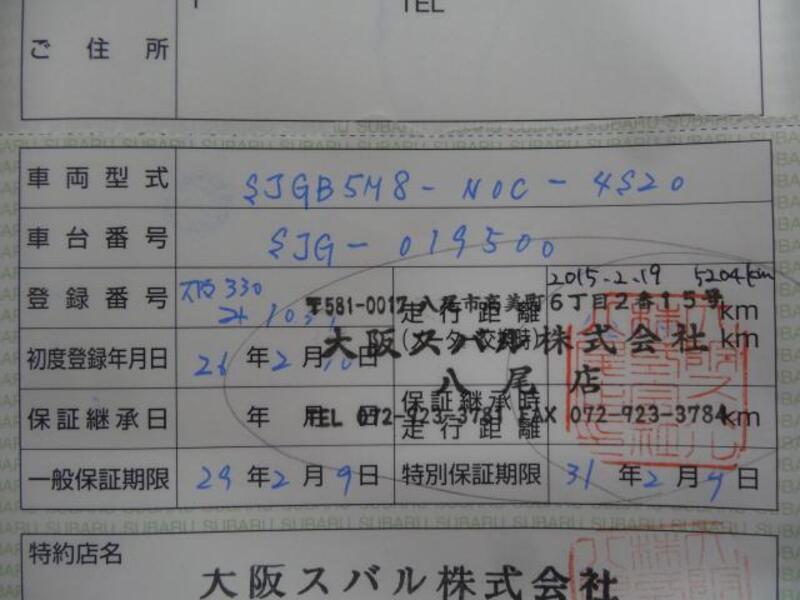 TEL
ご住所
SUBARU SUBARU SUBARU
車両型式 SJGB5M8-NOC-4S20
車台番号 SJG-019500
登録番号 大阪330
2015.2.19 5204km
〒581-0017 八尾市高美町6丁目2番15号
走行距離 km
初度登録年月日 26年2月10日
大阪スバル株式会社 km
八尾店
保証継承日 年 月 日 保証継承時
走行距離 km
TEL 072-923-3781 FAX 072-923-3784
一般保証期限 29年2月9日 特別保証期限 31年2月9日
SUBARU SUBARU SUBARU SUBARU
特約店名
大阪スバル株式会社